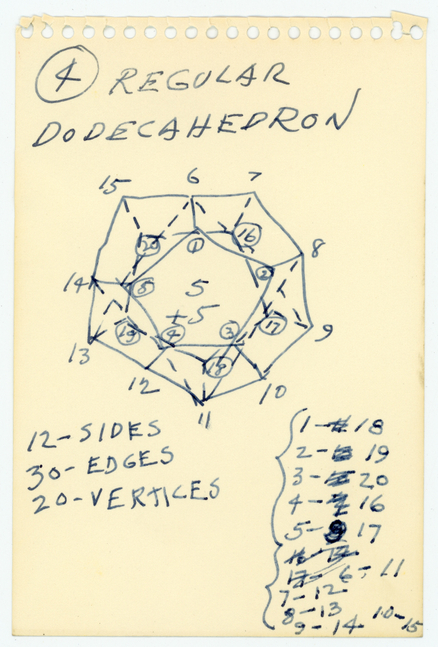 4 REGULAR
DODECAHEDRON
15 6 7
20 1 16 8
14 5 5 2
+5
19 4 3 17 9
13 18
12 11 10
12-SIDES
30-EDGES
20-VERTICES
1-18
2-19
3-20
4-16
5-17
6-11
7-12
8-13 10-15
9-14